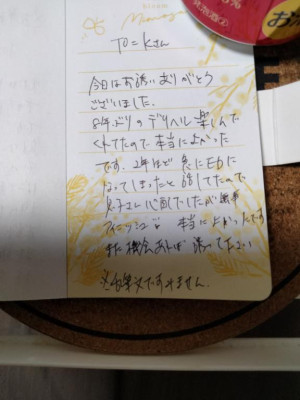 Memory
Tロニkさん
今日はお誘いありがとう
ございました。
8年ぶりのデリヘル楽しんで
くれてたので本当によかった
です。2年ほど急にEDに
なってしまったと話してたので
心配していたが無事
フィニッシュ 本当によかったです
また機会あれば誘って下さい
※乱筆文ですみません。
お